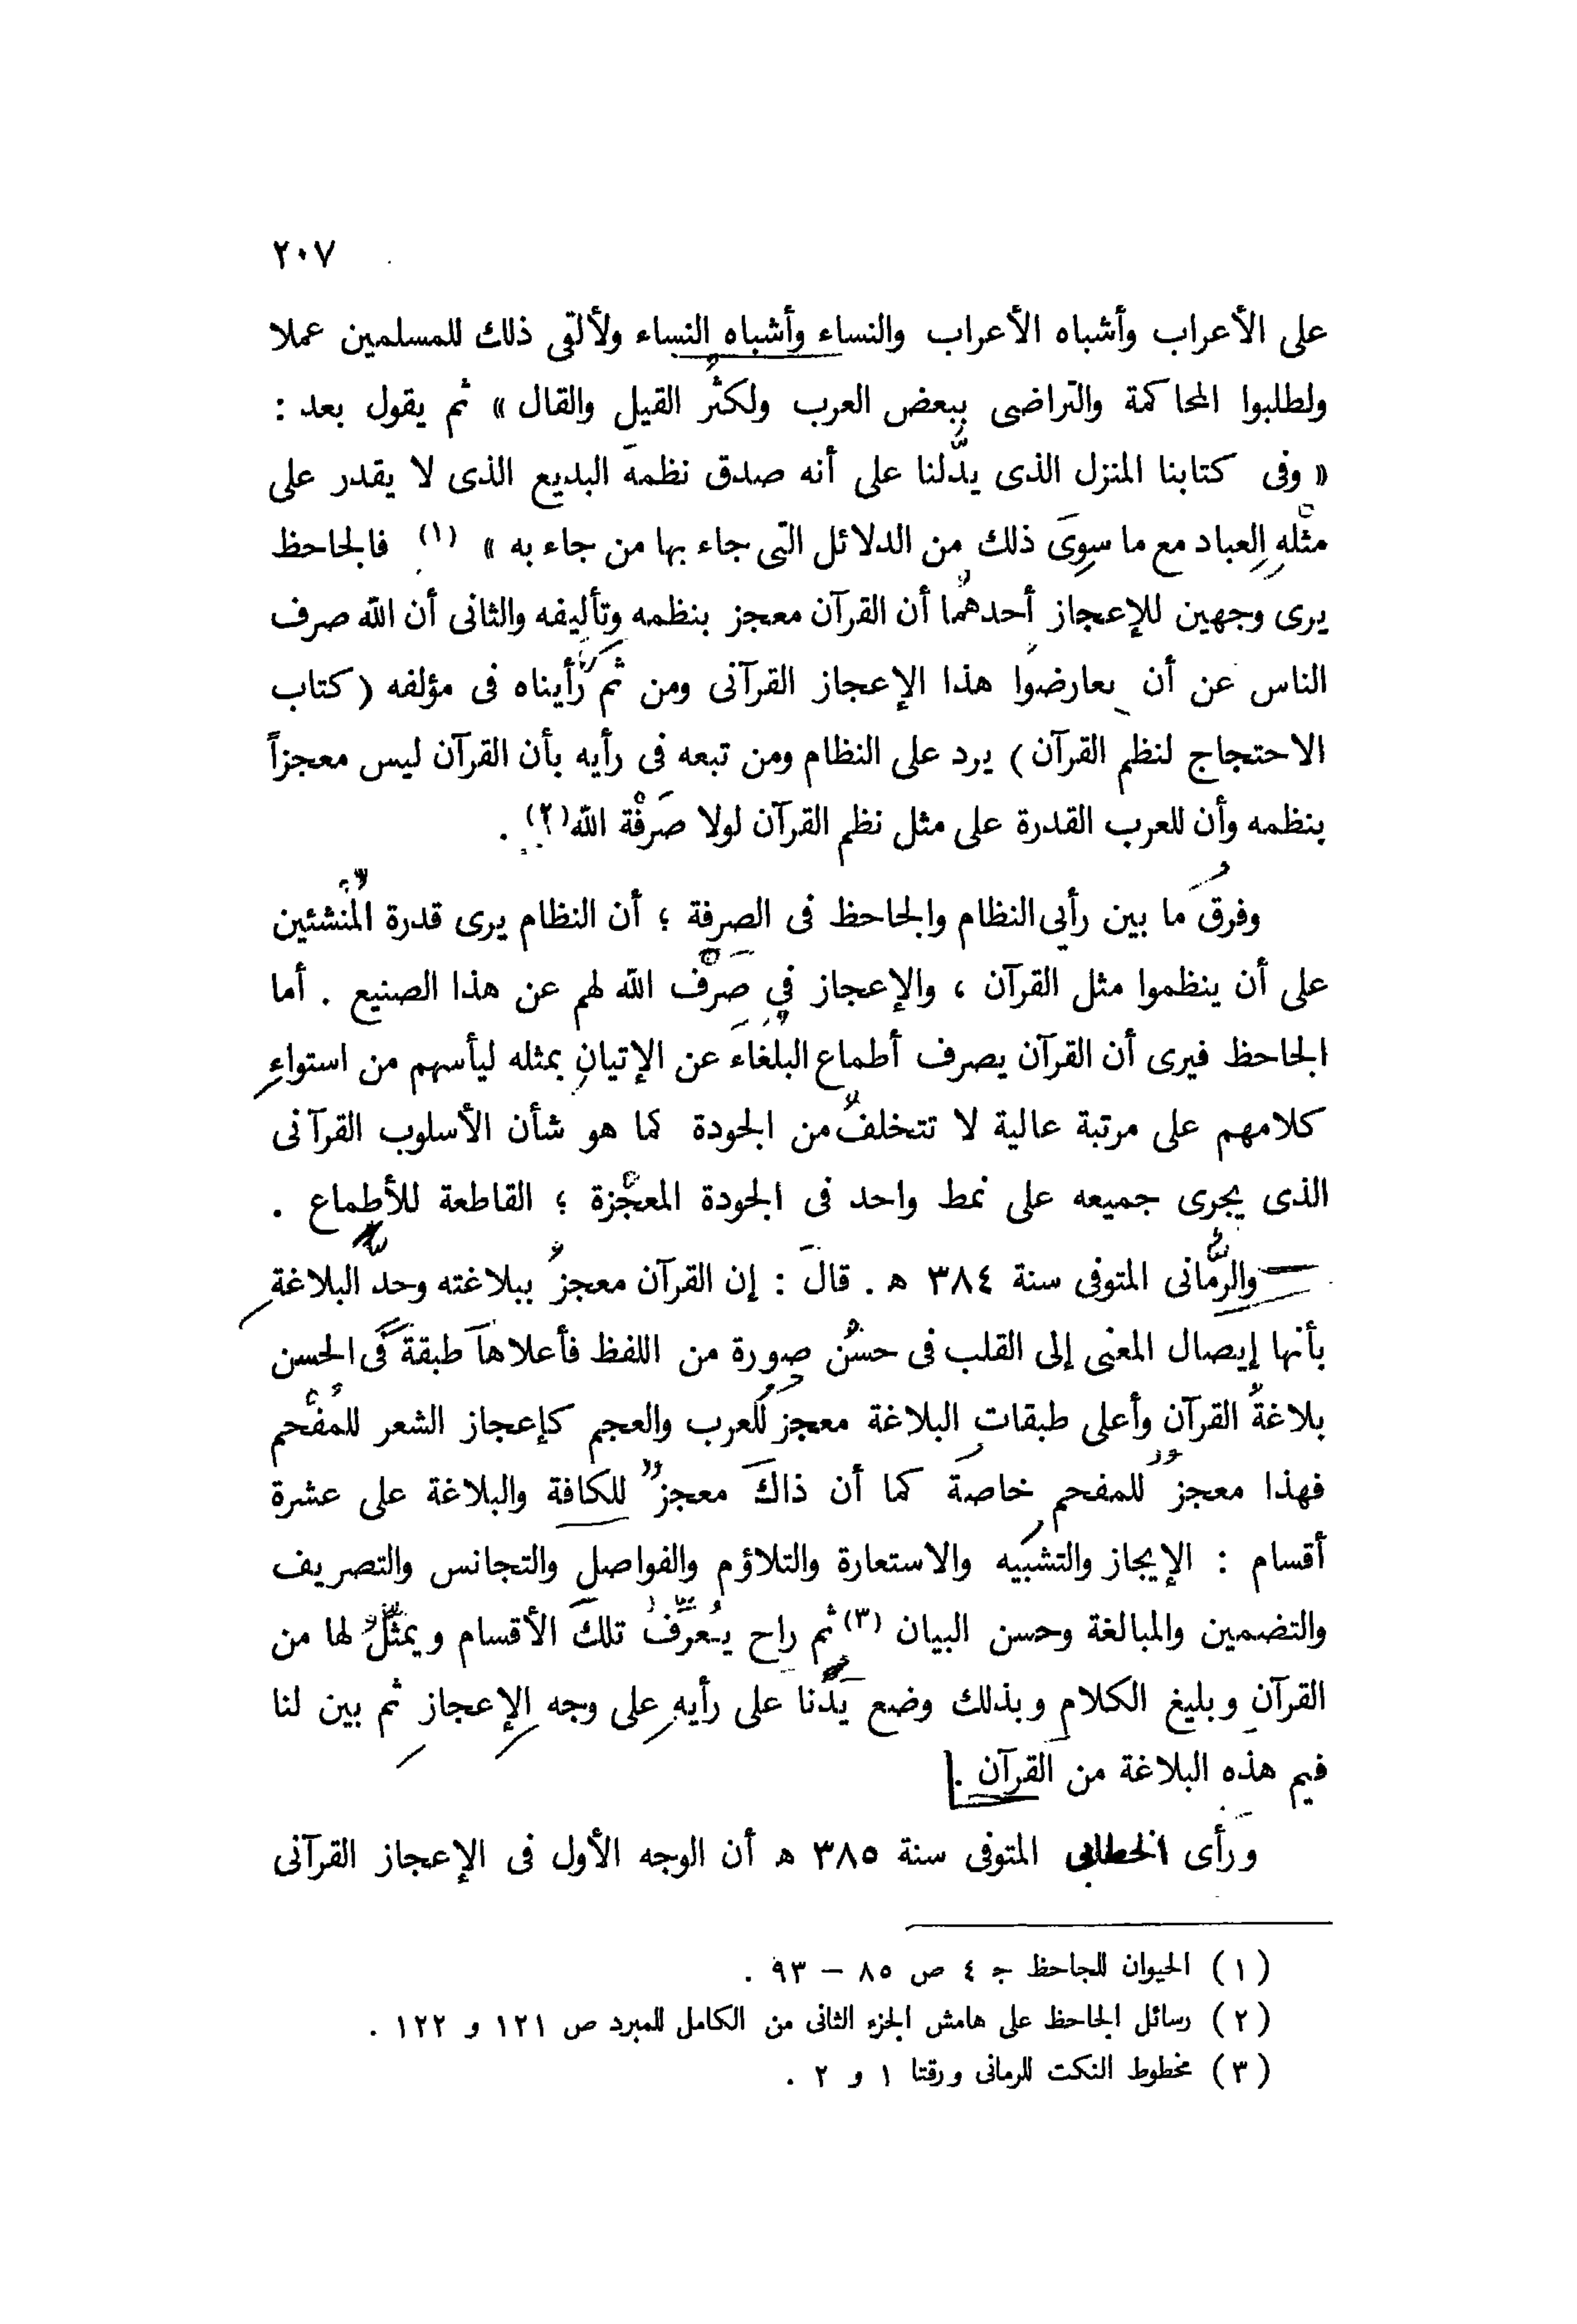 ٢٠٧
على الأعراب وأشباه الأعراب والنساء وأشباه النساء ولألقى ذلك للمسلمين عملا
ولطلبوا المحاكمة والتراضى ببعض العرب ولكثر القيل والقال » ثم يقول بعد :
« وفى كتابنا المنزل الذى يدلنا على أنه صدق نظمه البديع الذى لا يقدر على
مثله العباد مع ما سوى ذلك من الدلائل التى جاء بها من جاء به » (١) فالجاحظ
يرى وجهين للإعجاز أحدهما أن القرآن معجز بنظمه وتأليفه والثانى أن الله صرف
الناس عن أن يعارضوا هذا الإعجاز القرآنى ومن ثم رأيناه فى مؤلفه ( كتاب
الاحتجاج لنظم القرآن ) يرد على النظام ومن تبعه فى رأيه بأن القرآن ليس معجزاً
بنظمه وأن للعرب القدرة على مثل نظم القرآن لولا صَرفْة الله(٢) .
وفرق ما بين رأيى النظام والجاحظ فى الصرفة ؛ أن النظام يرى قدرة المُنشئين
على أن ينظموا مثل القرآن ، والإعجاز في صَرْف الله لهم عن هذا الصنيع . أما
الجاحظ فيرى أن القرآن يصرف أطماع البلغاء عن الإتيان بمثله ليأسهم من استواء
كلامهم على مرتبة عالية لا تتخلف من الجودة كما هو شأن الأسلوب القرآنى
الذى يجرى جميعه على نمط واحد فى الجودة المعجزة ؛ القاطعة للأطماع .
والرُّمانى المتوفى سنة ٣٨٤ ه . قال : إن القرآن معجز ببلاغته وحد البلاغة
بأنها إيصال المعنى إلى القلب فى حسن صورة من اللفظ فأعلاها طبقة فى الحسن
بلاغة القرآن وأعلى طبقات البلاغة معجز للعرب والعجم كإعجاز الشعر للمُفْحم
فهذا معجز للمفحم خاصة كما أن ذاك معجز للكافة والبلاغة على عشرة
أقسام : الإيجاز والتشبيه والاستعارة والتلاؤم والفواصل والتجانس والتصريف
والتضمين والمبالغة وحسن البيان (٣) ثم راح يُعرّف تلك الأقسام ويمثّل لها من
القرآن وبليغ الكلام وبذلك وضع يدنا على رأيه على وجه الإعجاز ثم بين لنا
فيم هذه البلاغة من القرآن .
ورأى الخطابى المتوفى سنة ٣٨٥ ه أن الوجه الأول فى الإعجاز القرآنى
( ١ ) الحيوان للجاحظ ج ٤ ص ٨٥ – ٩٣ .
( ٢ ) رسائل الجاحظ على هامش الجزء الثانى من الكامل للمبرد ص ١٢١ و ١٢٢ .
( ٣ ) مخطوط النكت للرمانى ورقتا ١ و ٢ .